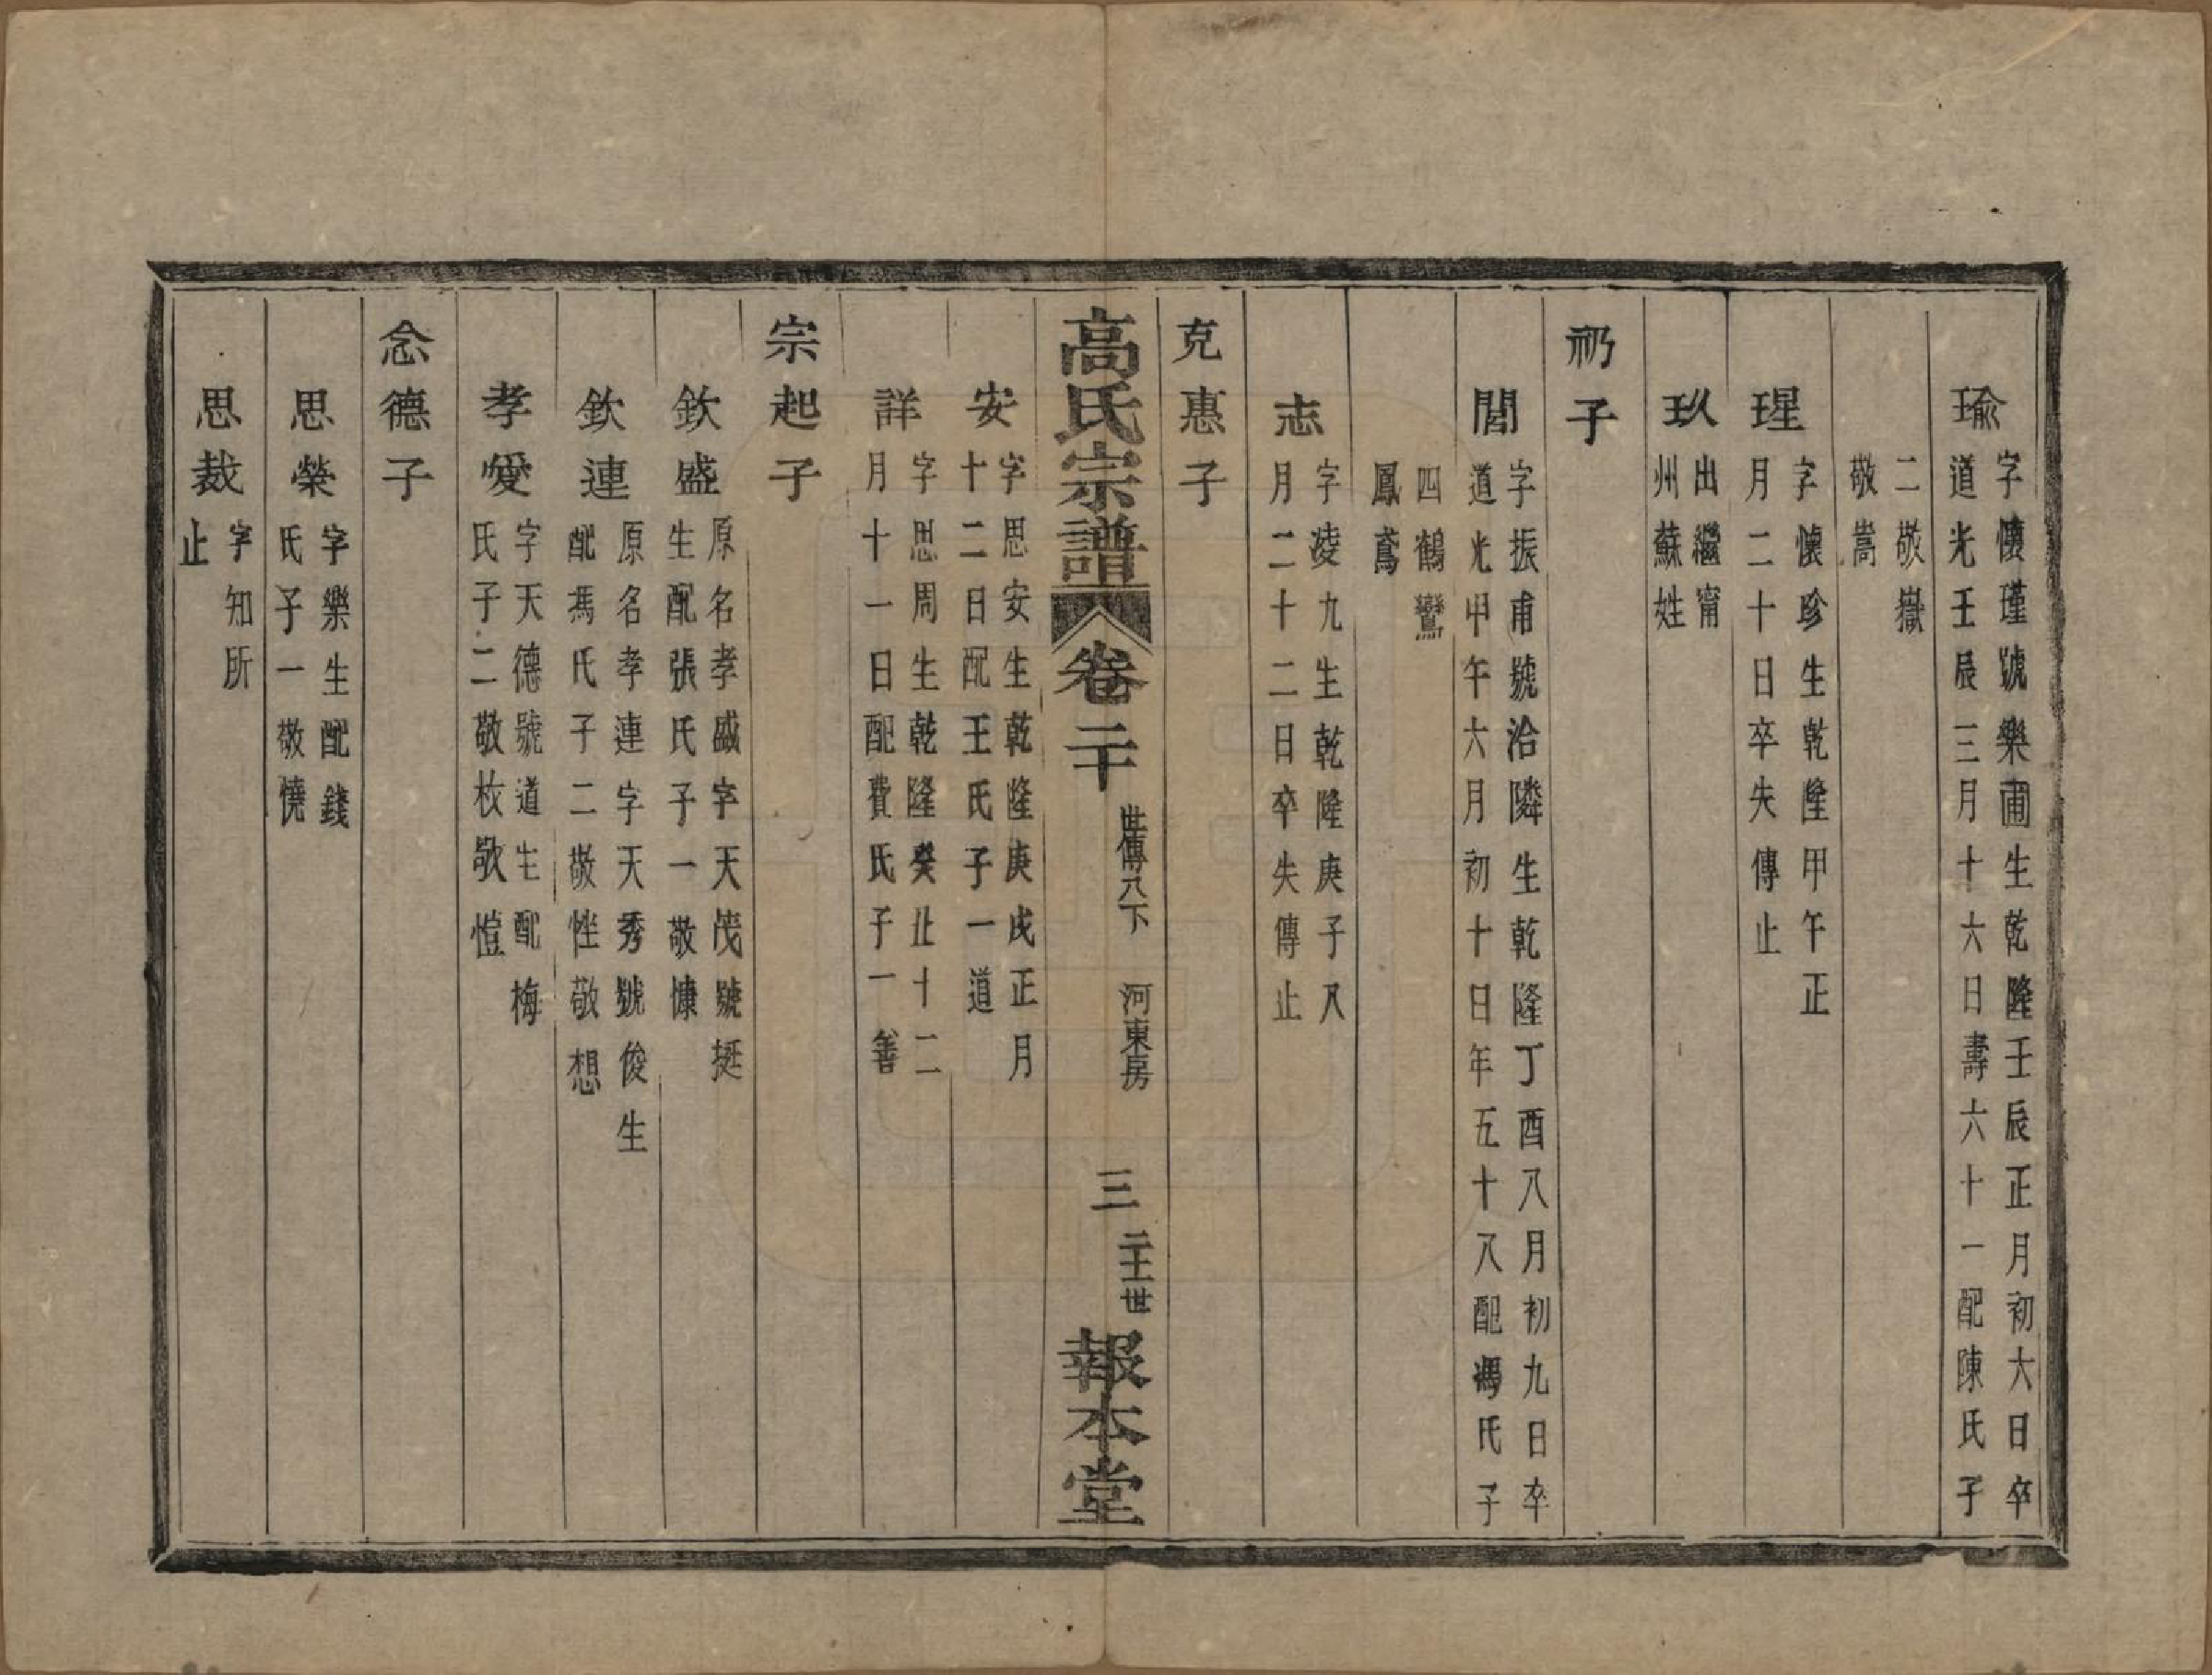 瑜 字懷瑾號樂圃生乾隆壬辰正月初六日卒
道光壬辰三月十六日壽六十一配陳氏子
二敬嶽
敬嵩
瑆 字懷珍生乾隆甲午正
月二十日卒失傳止
玖 出繼甯
州蘇姓
礽子
閭 字振甫號洽隣生乾隆丁酉八月初九日卒
道光甲午六月初十日年五十八配馮氏子
四鶴鸞
鳳鳶
志 字淩九生乾隆庚子八
月二十二日卒失傳止
克惠子
高氏宗譜 卷二十 世傳八下 河東房 三 二十一世 報本堂
安 字思安生乾隆庚戌正月
十二日配王氏子一道
詳 字思周生乾隆癸丑十二
月十一日配費氏子一善
宗起子
欽盛 原名孝盛字天茂號挺
生配張氏子一敬慷
欽連 原名孝連字天秀號俊生
配馮氏子二敬性敬想
孝愛 字天德號道生配梅
氏子二敬枚敬愷
念德子
思榮 字樂生配錢
氏子一敬憢
思裁 字知所
止